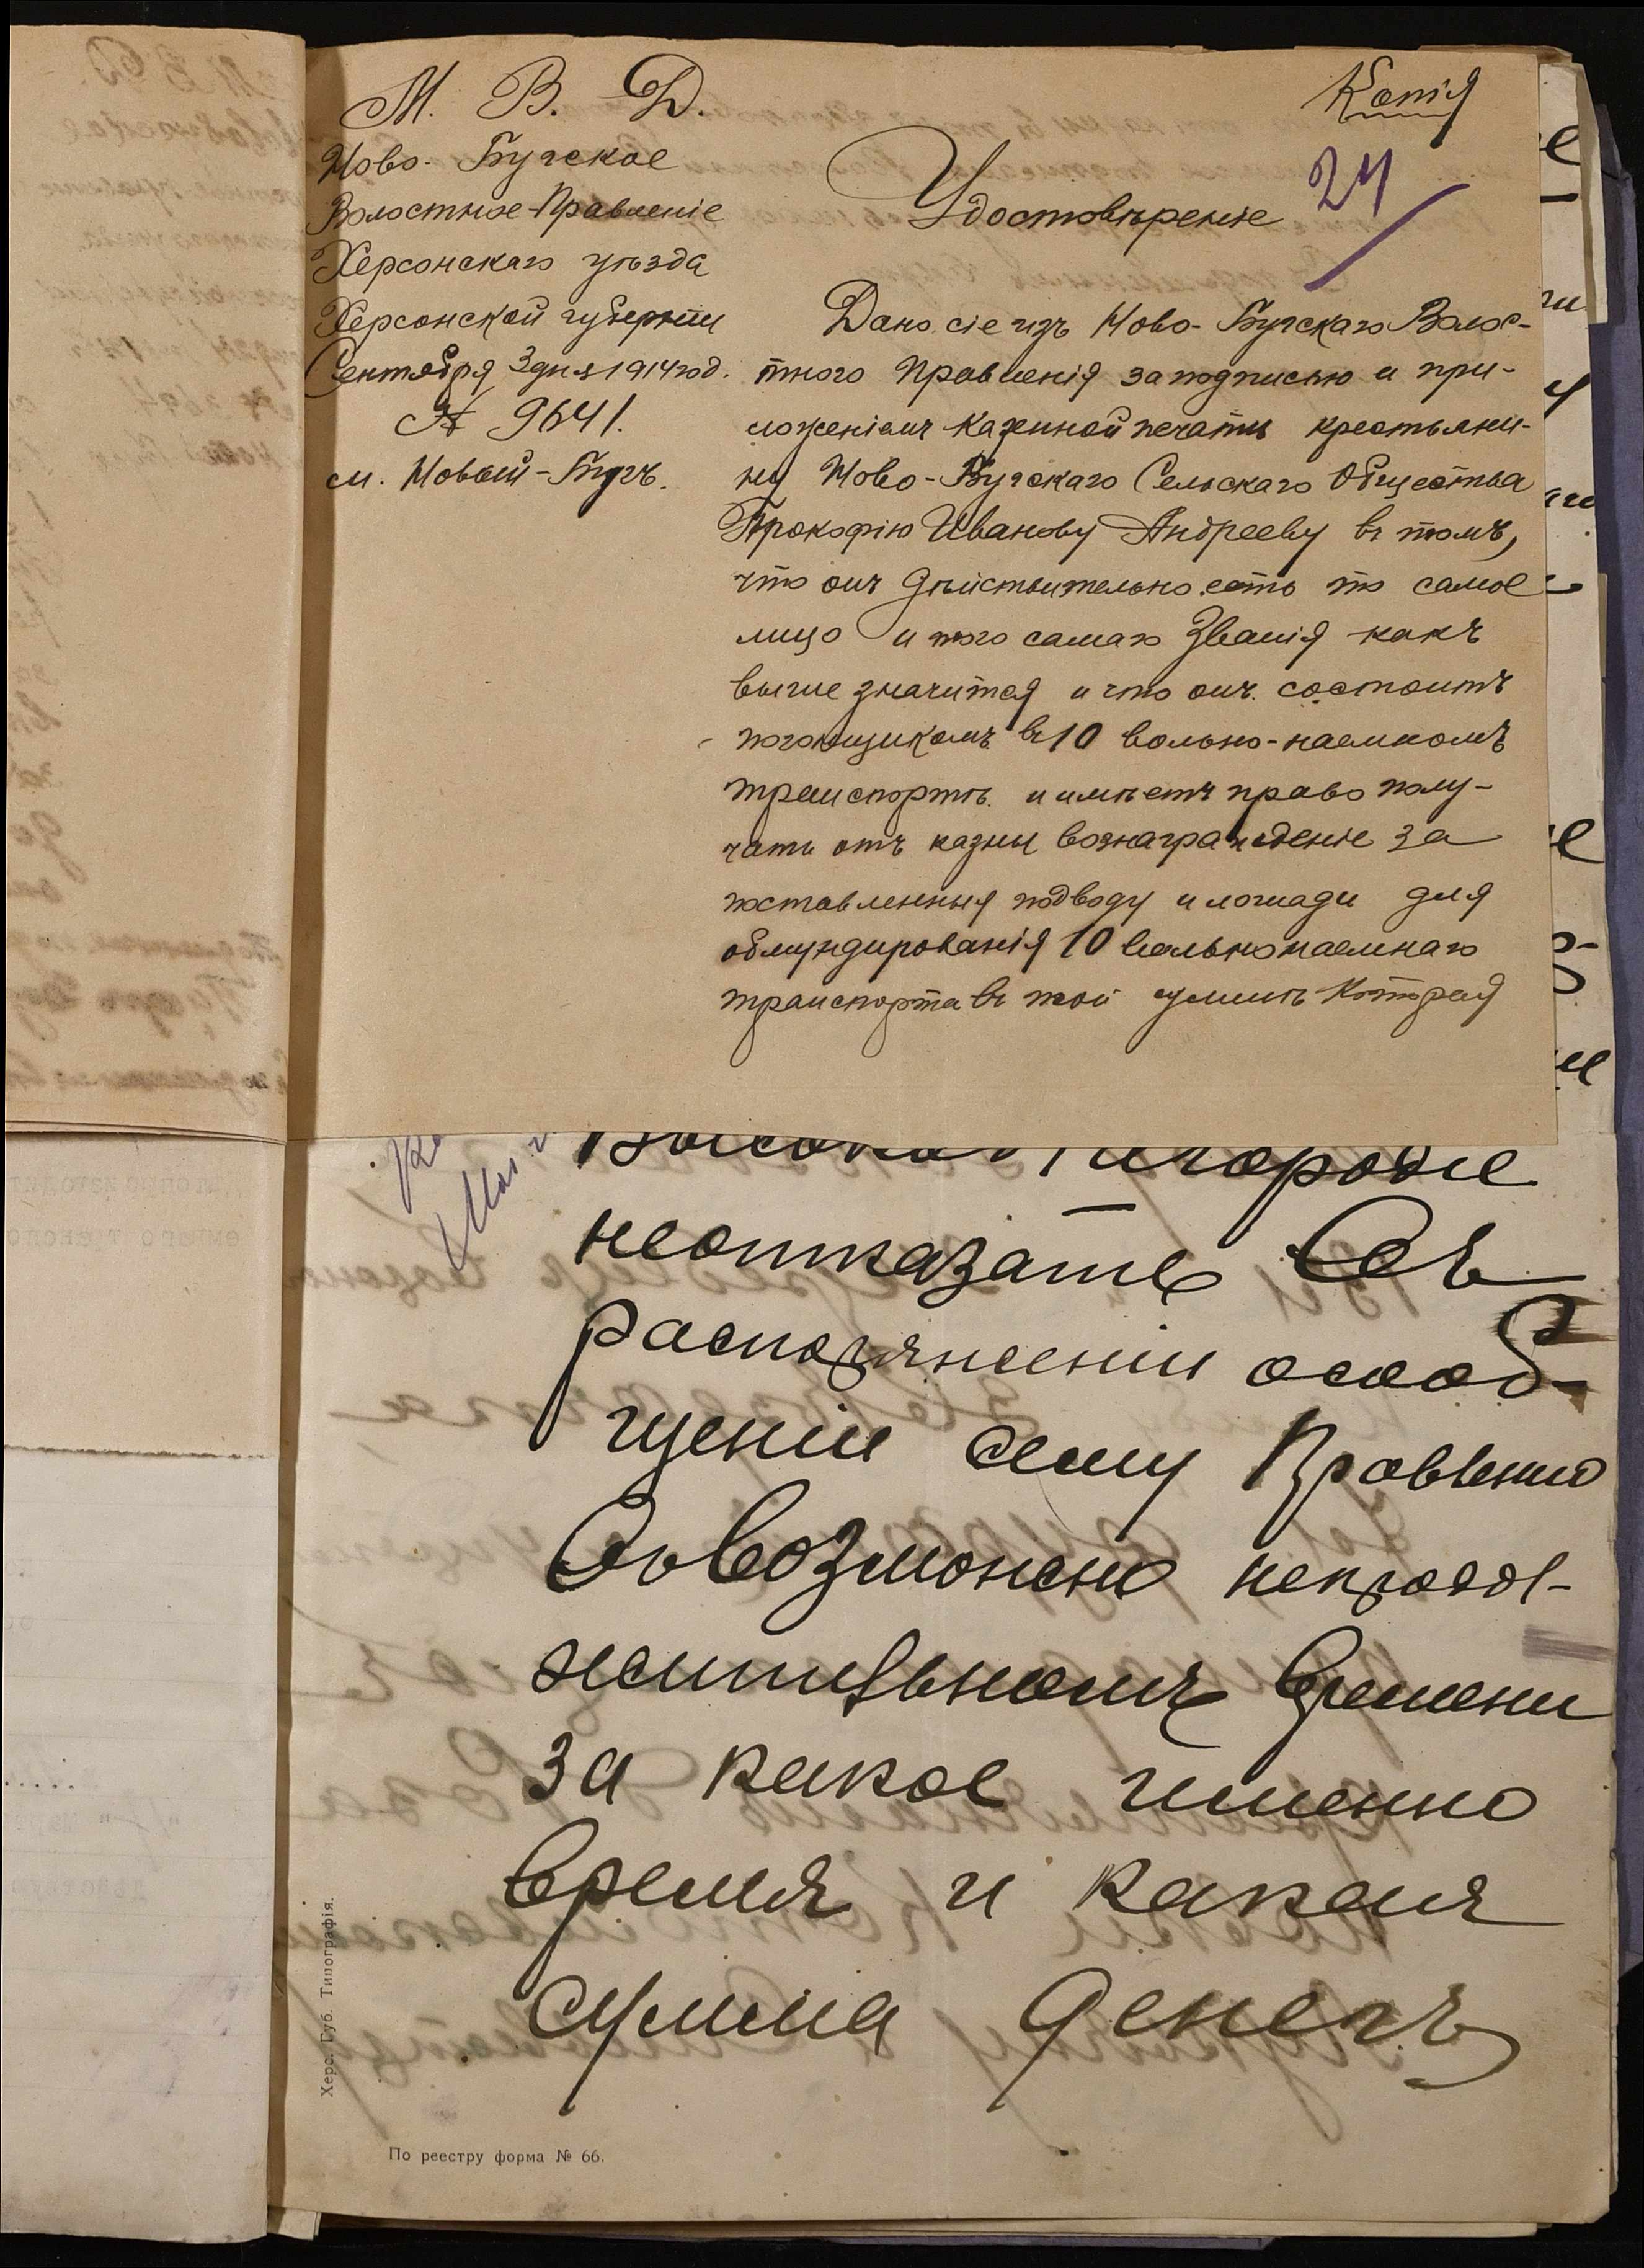 М. В. Д.
Ново-Бугское
Волостное Правленіе
Херсонскаго уѣзда
Херсонской губерніи
Сентября 3 дня 1914 год.
№ 9641.
м. Новый-Бугъ.
Копія
24
Удостовѣреніе
Дано сіе изъ Ново-Бугскаго Волос-
тного Правленія за подписью и при-
ложеніемъ казенной печати крестьяни-
ну Ново-Бугскаго Сельскаго Общества
Прокофію Иванову Андрееву въ томъ,
что онъ дѣйствительно есть то самое
лицо и того самаго званія какъ
выше значится и что онъ состоитъ
погонщикомъ въ 10 вольно-наемномъ
транспортѣ и имѣетъ право полу-
чать отъ казны вознагражденіе за
поставленныя подводу и лошади для
обмундированія 10 вольнонаемнаго
транспорта въ той суммѣ которая
неотказать въ
распоряженіи о сооб-
щеніи сему Правленію
въ возможно непродол-
жительномъ времени
за какое именно
время и какая
сумма денегъ
Херс. Губ. Типографія.
По реестру форма № 66.